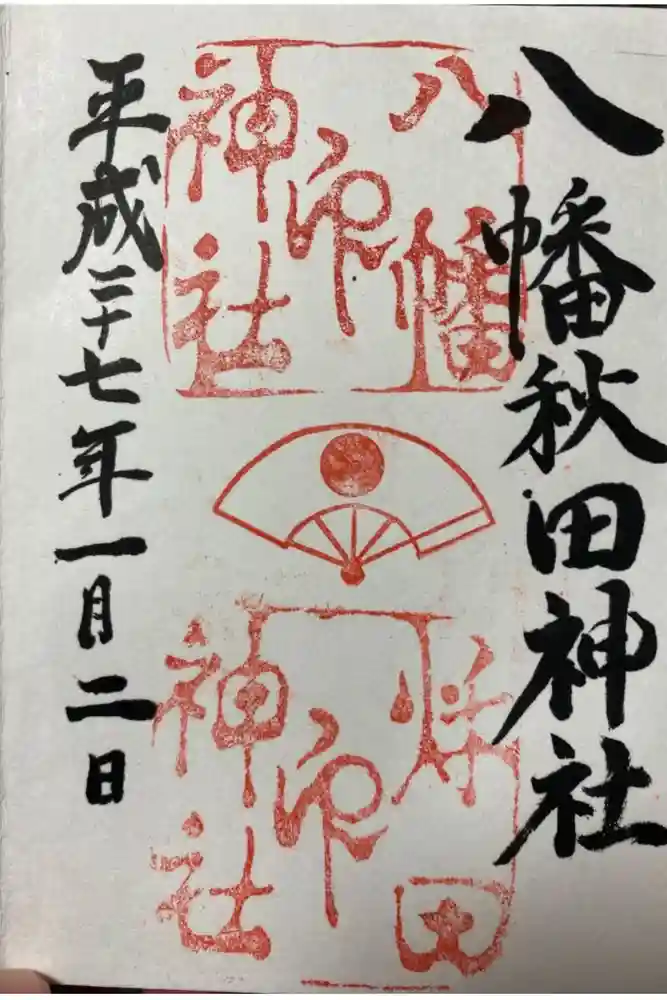 八幡秋田神社
八幡
神社
印
秌田
神社
印
平成二十七年一月二日